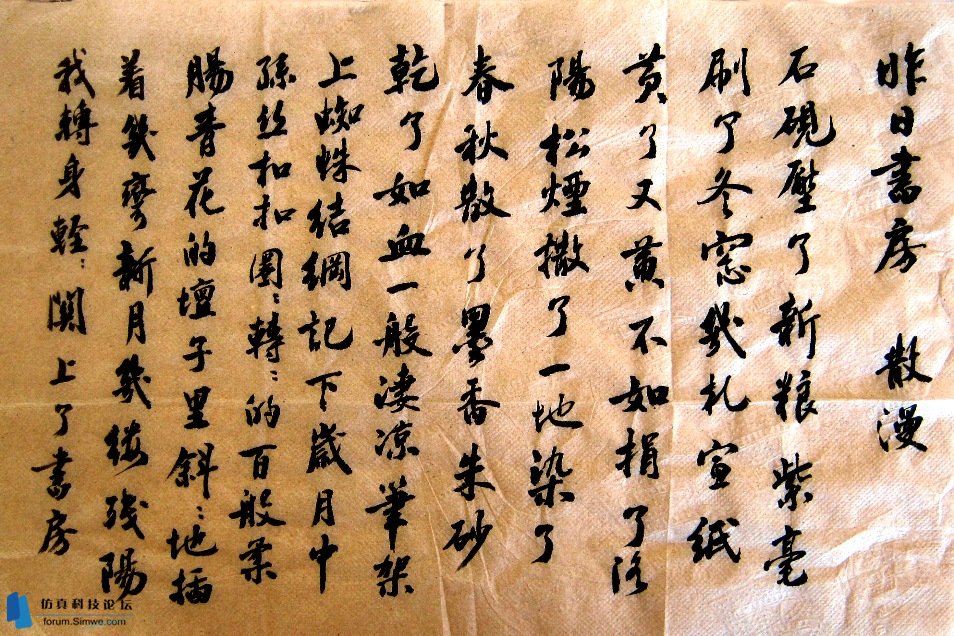 昨日書房 散漫
石硯壓了新粮紫毫
刷了冬窓幾札宣紙
黄了又黄不如捐了洛
陽松煙撒了一地染了
春秋散了墨香朱砂
乾了如血一般凄凉筆架
上蜘蛛结網記下歲月中
孫丝扣扣圈:轉:的百般柔
腸青花的壇子里斜:地插
着幾彎新月幾缕残陽
我轉身輕:関上了書房
仿真科技论坛
forum.Simwe.com